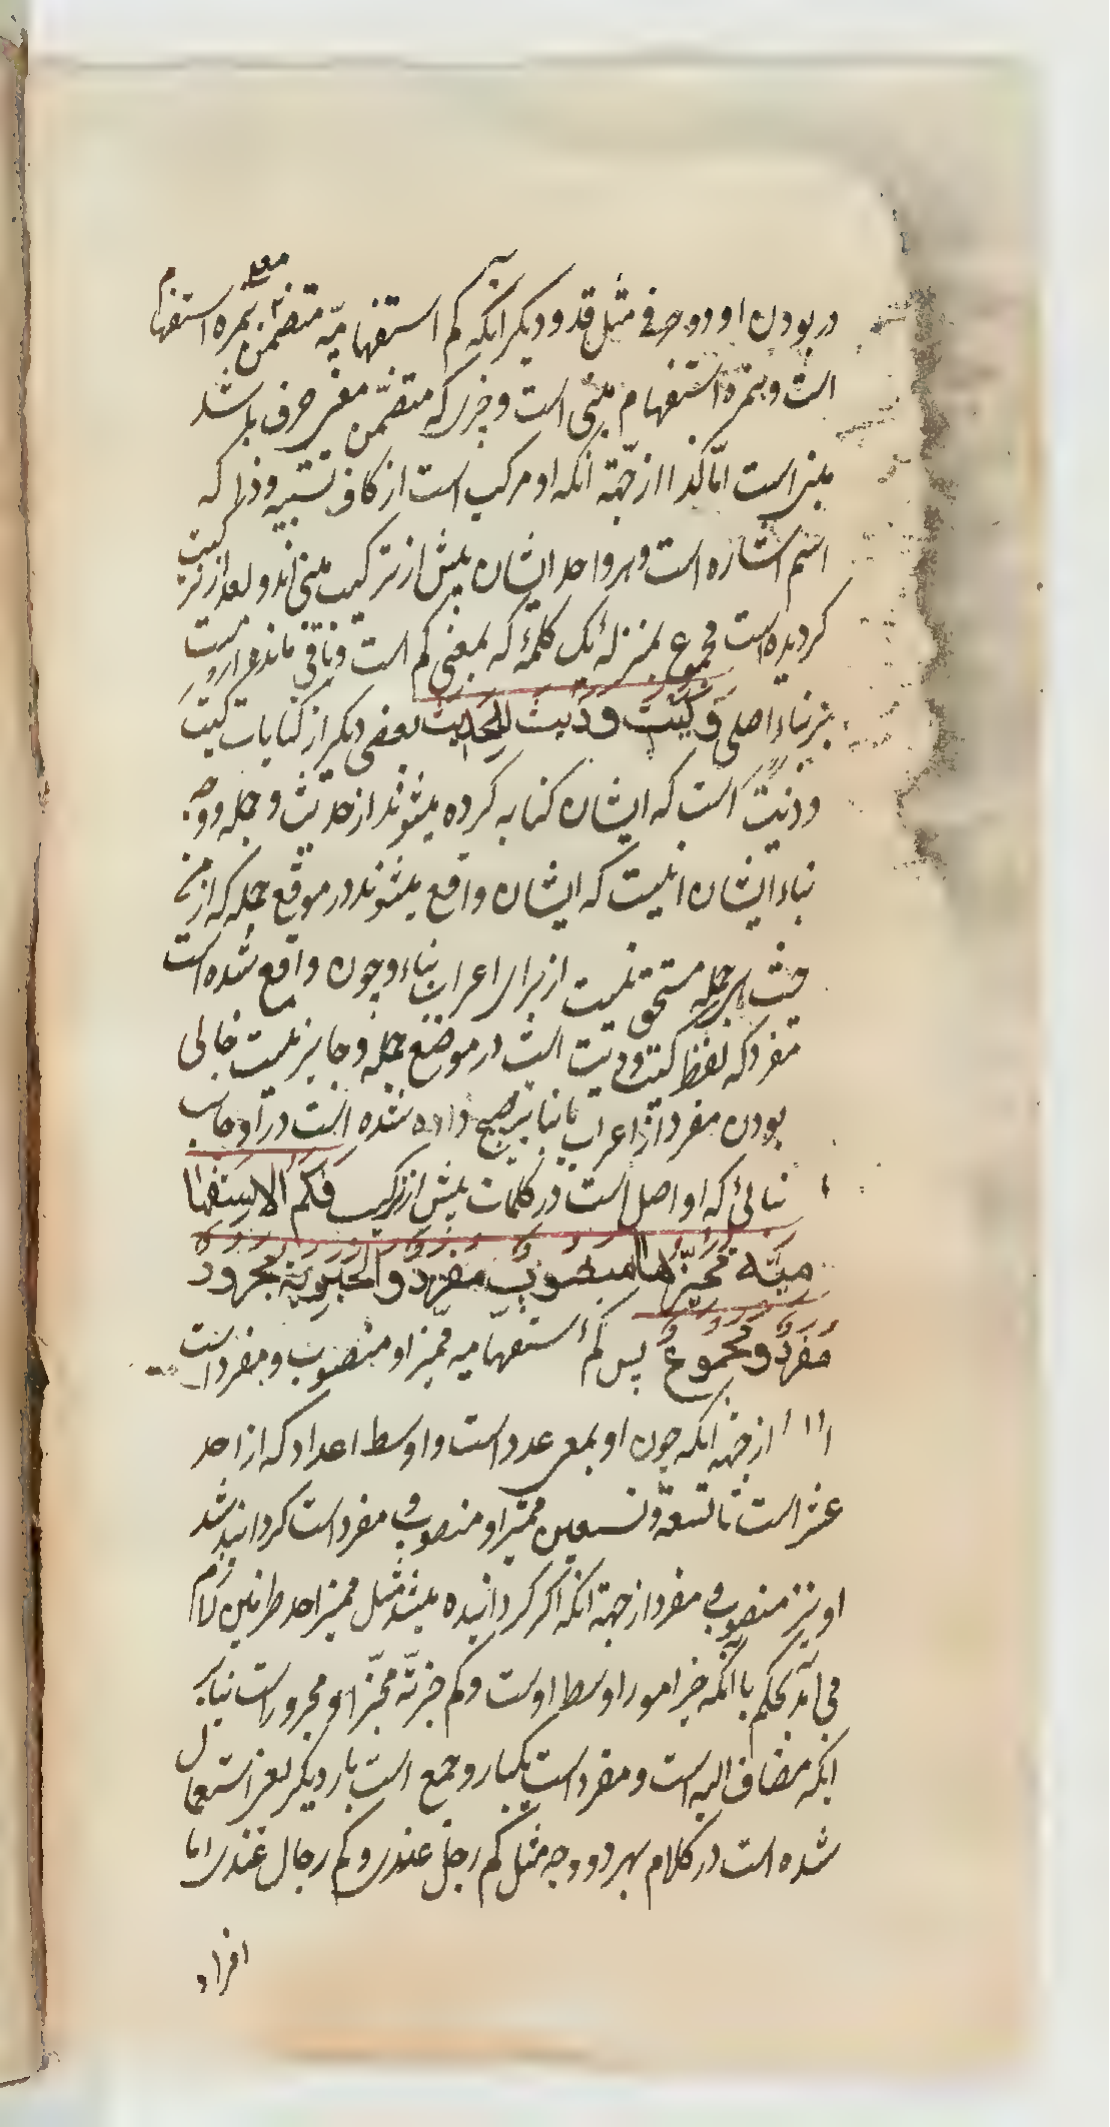 در بودن او دو حرفی مثل قد و دیگر آنکه کم استفهامیّه متضمّن معنی همزه استفهام
است و همزه استفهام مبنی است و چیزی که متضمّن معنی حرف باشد
مبنی است امّا کذا از جهة آنکه او مرکب است از کاف تشبیه و ذا که
اسم اشاره است و هر واحد ایشان پیش از ترکیب مبنی‌اند و بعد از ترکیب
گردیده است مجموع بمنزله یک کلمهٔ که بمعنی کم است و باقی مانده است
بر بناء اصلی وَ کَیْتَ وَ ذَیْتَ لِلْحَدِیْثِ بعضی دیگر از کنایات کیت
و ذیت است که ایشان کنایه کرده میشوند از حدیث و جمله و وجه
بناء ایشان اینست که ایشان واقع میشوند در موقع جمله که از من
حیث هی جمله مستحق نیست از برای اعراب بناء و چون واقع شده است
مفرد که لفظ کیت و ذیت است در موضع جمله و جایز نیست خالی
بودن مفرد از اعراب یا بنا ترجیح داده شده است در او جانب
بنائی که او اصل است در کلمات پیش از ترکیب فَکَم الاستفها
میَّه مُمَیِّزُها منصوبٌ مفردٌ و الخبریة مجرورٌ
مفردٌ و مجموعٌ پس کم استفهامیه ممیز او منصوب و مفرد است
از جهة آنکه چون او بمعنی عدد است و اوسط اعداد که از احد
عشر است تا تسعة و تسعین ممیّز او منصوب و مفرد است گردانیده شد
او نیز منصوب و مفرد از جهة آنکه اگر گردانیده میشد مثل ممیز احد طرفین لازم
می آید تحکم با آنکه خیر امور اوسط اوست و کم خبریّه ممیّز او مجرور است بنابر
آنکه مضاف الیه است و مفرد است یکبار و جمع است بار دیگر یعنی استعمال
شده است در کلام بهر دو وجه مثل کم رجل عندی و کم رجال عندی اما
افراد